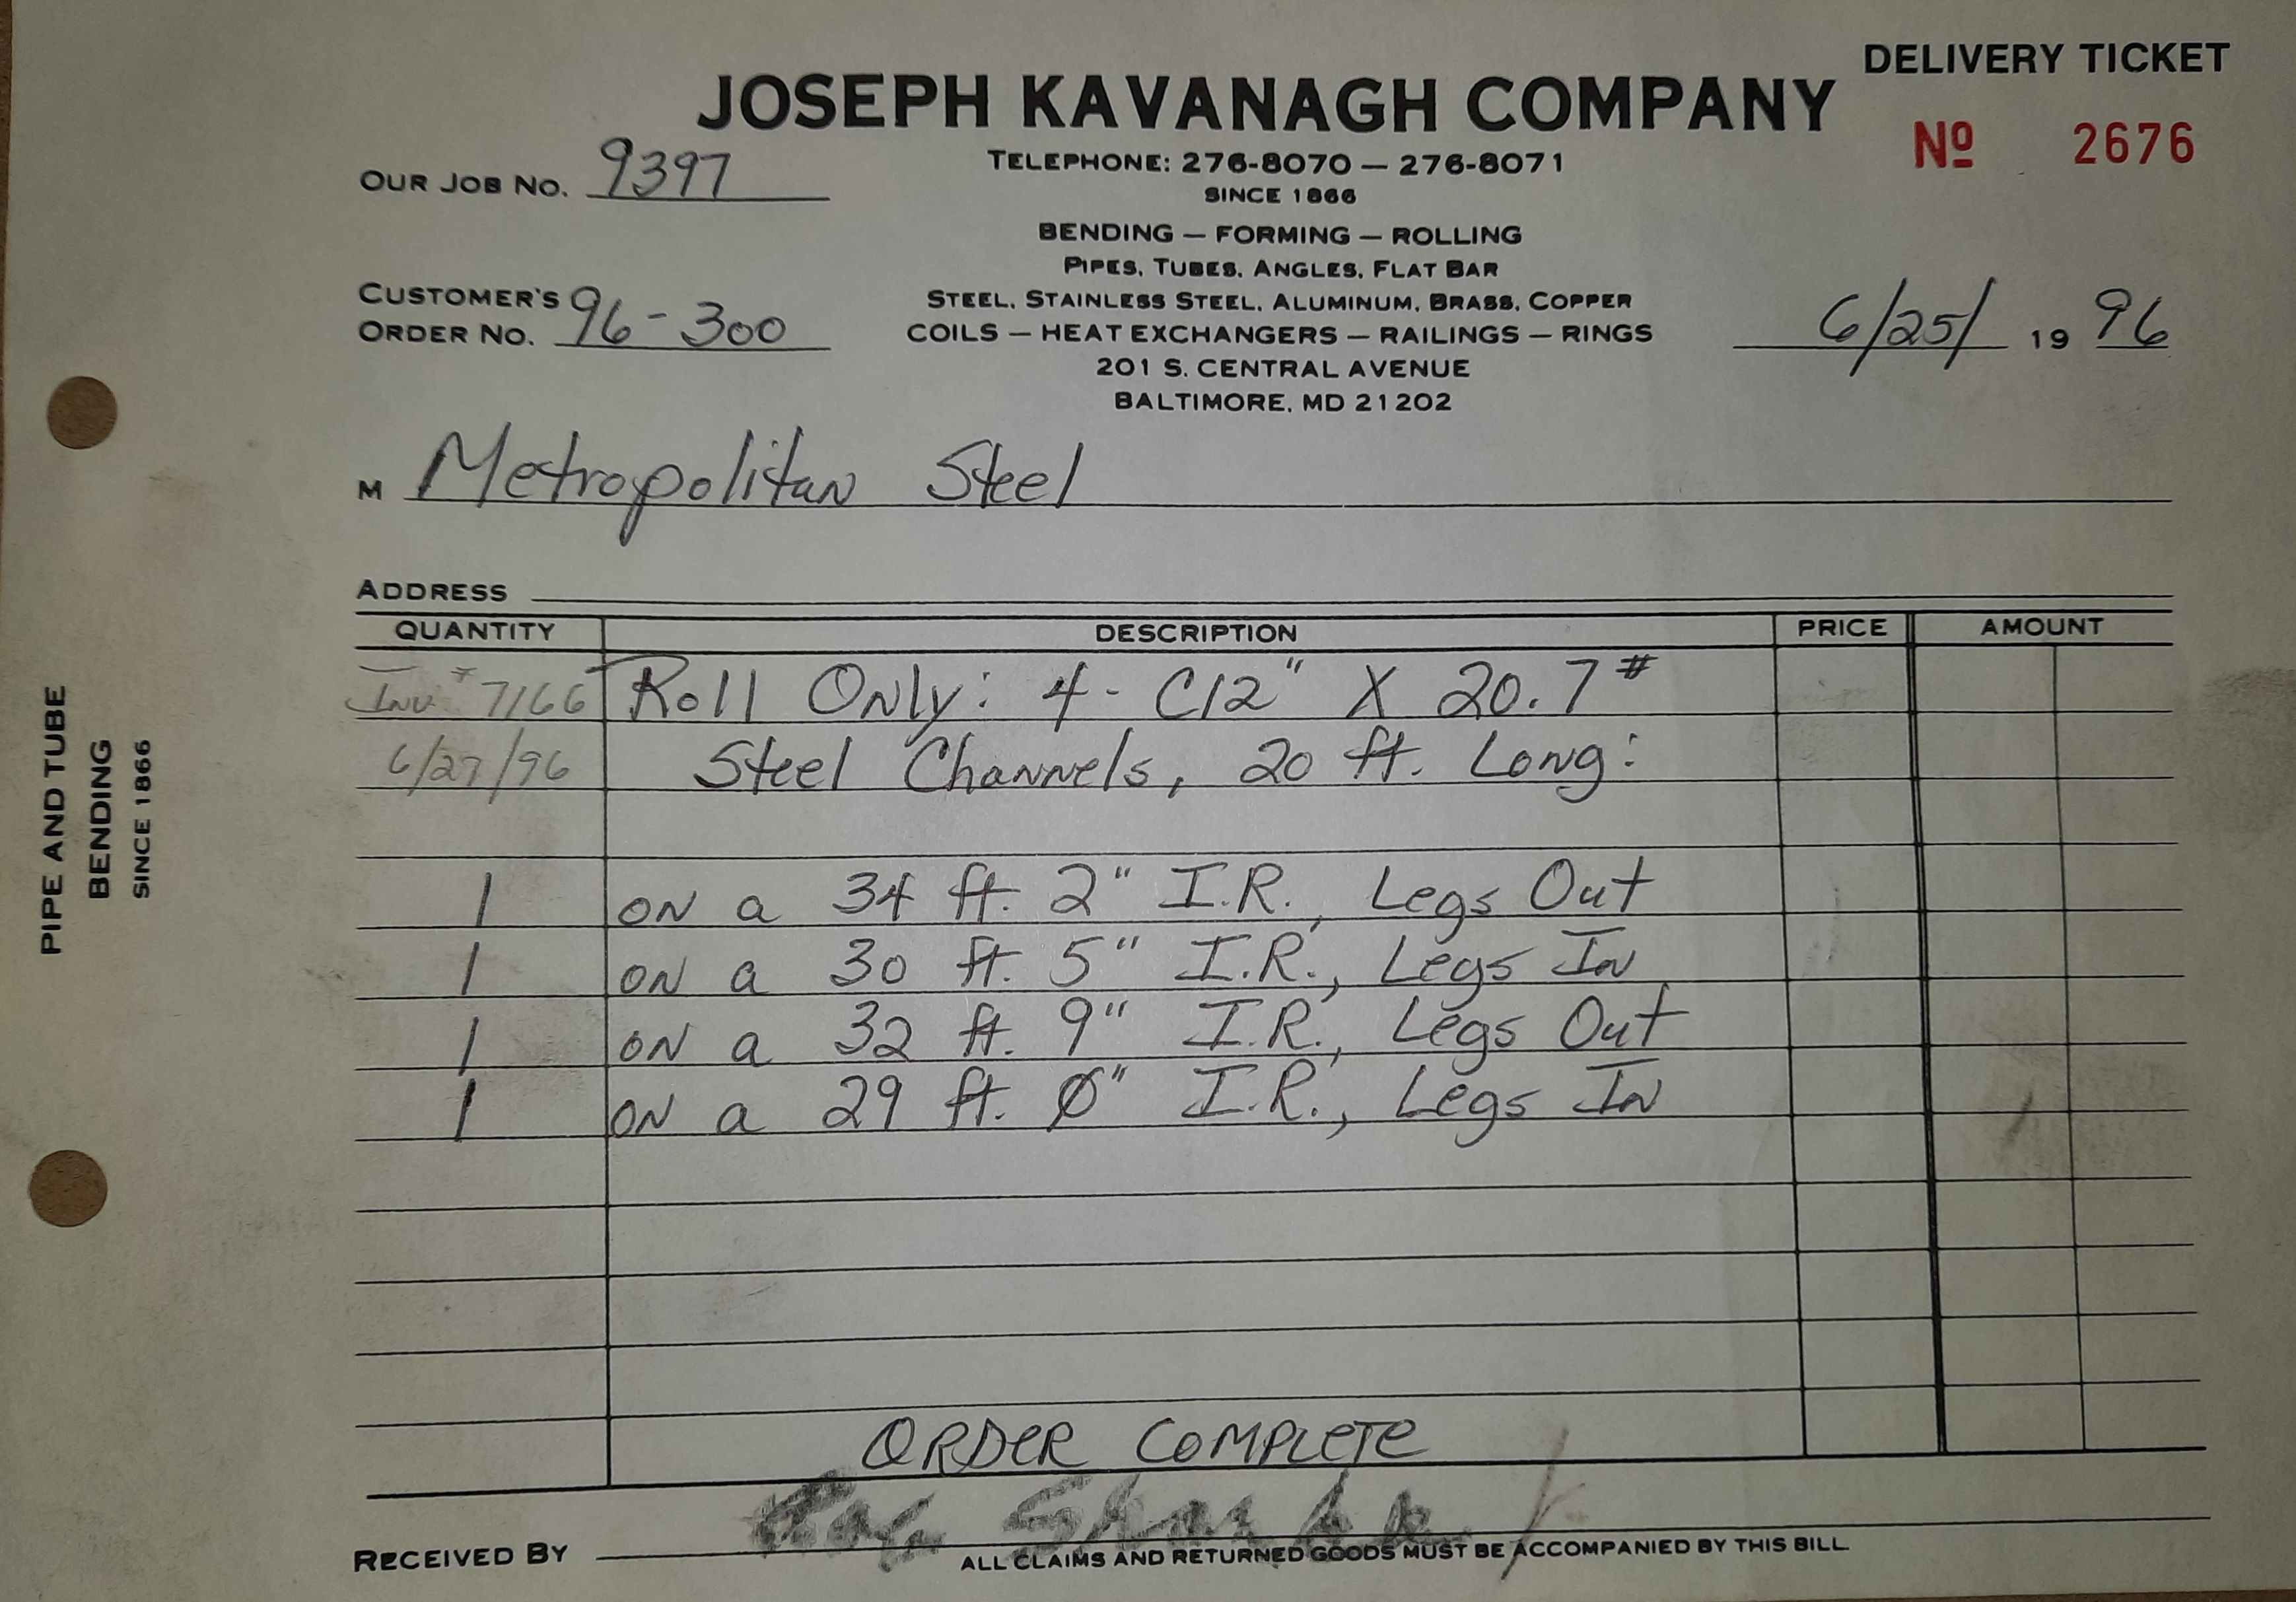 DELIVERY TICKET
JOSEPH KAVANAGH COMPANY
Nº 2676
OUR JOB NO. 9397
TELEPHONE: 276-8070 — 276-8071
SINCE 1866
BENDING — FORMING — ROLLING
PIPES, TUBES, ANGLES, FLAT BAR
CUSTOMER'S
ORDER NO. 96-300
STEEL, STAINLESS STEEL, ALUMINUM, BRASS, COPPER
COILS — HEAT EXCHANGERS — RAILINGS — RINGS
6/25/ 19 96
201 S. CENTRAL AVENUE
BALTIMORE, MD 21202
M Metropolitan Steel
ADDRESS
QUANTITY DESCRIPTION PRICE AMOUNT
Inv # 7166 Roll Only: 4- C12" X 20.7#
6/27/96 Steel Channels, 20 ft. Long:
1 ON a 34 ft. 2" I.R., Legs Out
1 ON a 30 ft. 5" I.R., Legs In
1 ON a 32 ft. 9" I.R., Legs Out
1 ON a 29 ft. 0" I.R., Legs In
ORDER COMPLETE
RECEIVED BY
ALL CLAIMS AND RETURNED GOODS MUST BE ACCOMPANIED BY THIS BILL
PIPE AND TUBE
BENDING
SINCE 1866